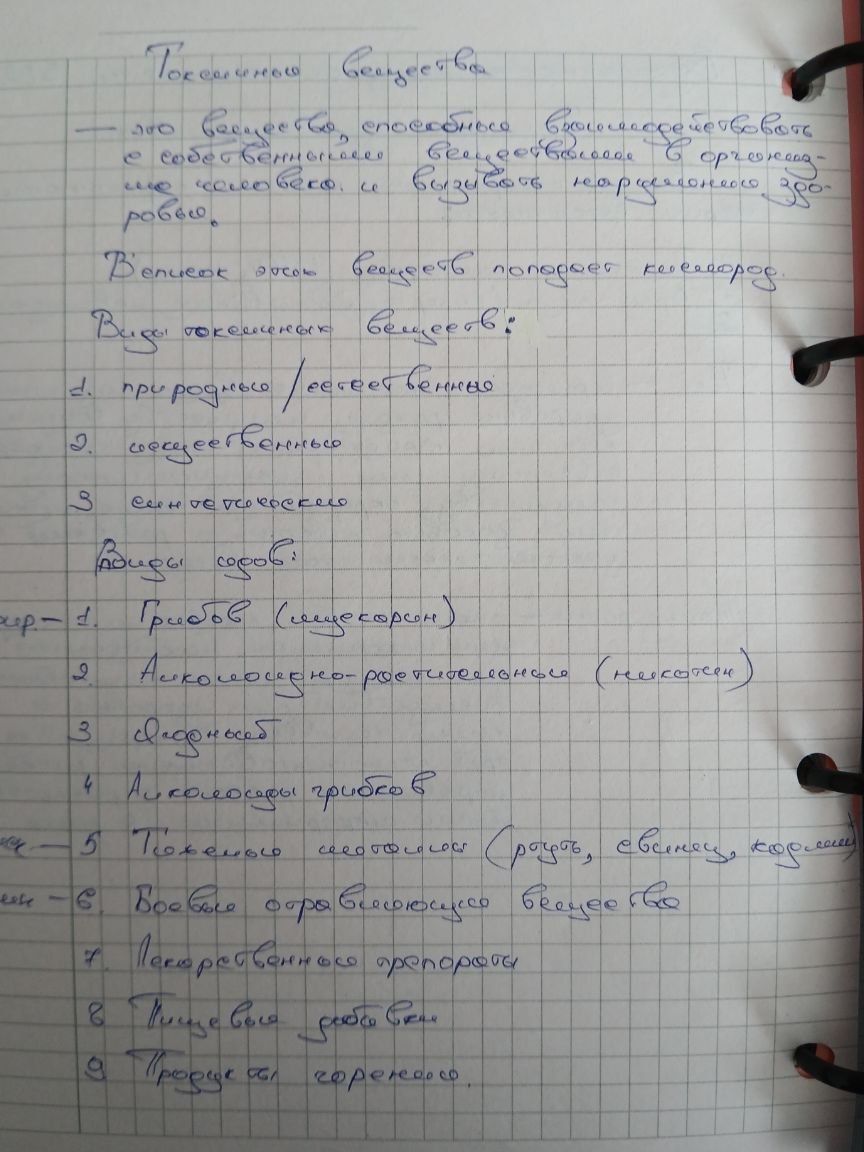 Токсичные вещества
— это вещества, способные взаимодействовать
с собственными веществами в организ-
ме человека и вызывать нарушения здо-
ровья.
В список этих веществ попадает кислород.
Виды токсичных веществ:
1. природные/естественные
2. искусственные
3 синтетические
Виды ядов:
пр. – 1. Грибов (мускарин)
2. Алкалоидно-растительные (никотин)
3
4 Алкалоиды грибков
5 Тяжелые металлы (ртуть, свинец, кадмий)
6. Боевые отравляющие вещества
7. Лекарственные препараты
8 Пищевые добавки
9 Продукты горения.